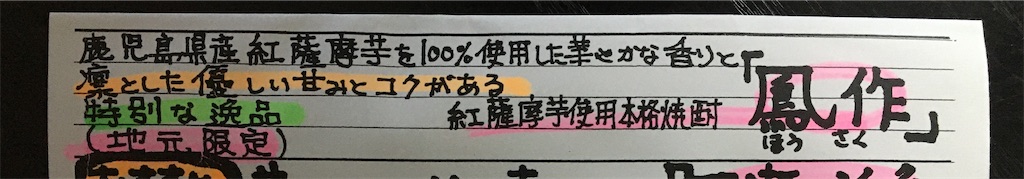 鹿児島県産紅薩摩芋を100%使用した華やかな香りと
凛とした優しい甘みとコクがある
特別な逸品
(地元限定)
紅薩摩芋使用本格焼酎
「鳳作」
ほう さく